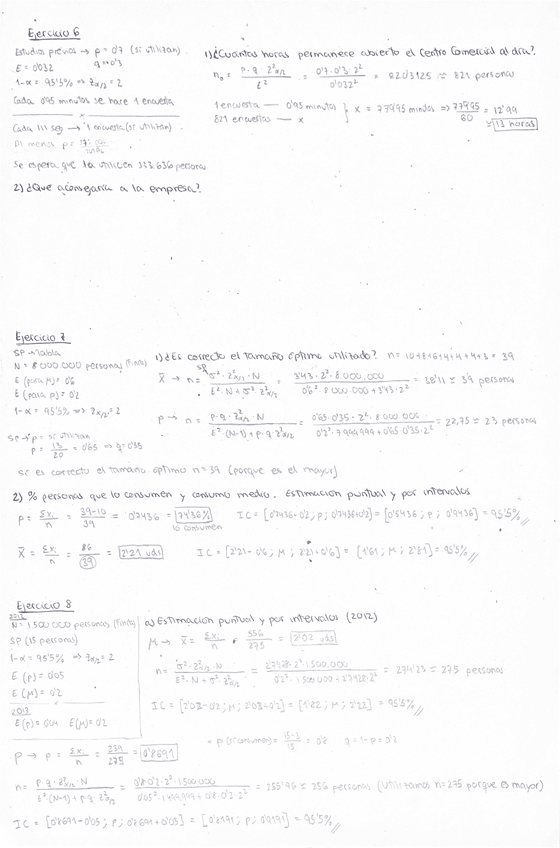 Ejercicio 6
Estudios previos → p = 0'7 (sí utilizan).
q = 0'3
E = 0'032
1-α = 95'5% ⇒ Zα/2 = 2
Cada 0'95 minutos se hace 1 encuesta
Cada 111 seg → 1 encuesta (sí utilizan).
Al menos p =
Se espera que la utilicen 333.636 personas
1) ¿Cuántas horas permanece abierto el Centro Comercial al día?
n₀ = p · q · Z²α/2 / E² = 0'7 · 0'3 · 2² / 0'032² = 820'3125 ≈ 821 personas
1 encuesta — 0'95 minutos
821 encuestas — x
} x = 779'95 minutos ⇒ 779'95 / 60 = 12'99 ≈ 13 horas
2) ¿Que aconsejaría a la empresa?
Ejercicio 7
SP → tabla
N = 8 000 000 personas (Finita)
E (para μ) = 0'6
E (para p) = 0'2
1-α = 95'5% ⇒ Zα/2 = 2
SP → p = sí utilizan
p = 13 / 20 = 0'65 ⇒ q = 0'35
1) ¿Es correcto el tamaño óptimo utilizado? n = 10+8+6+4+4+4+3 = 39
x̄ → n = σ² · Z²α/2 · N / E² · N + σ² · Z²α/2 = 3'43 · 2² · 8.000.000 / 0'6² · 8.000.000 + 3'43 · 2² = 38'11 ≈ 39 personas
SP
p → n = p · q · Z²α/2 · N / E² · (N-1) + p · q · Z²α/2 = 0'65 · 0'35 · 2² · 8 000 000 / 0'2² · 7 999 999 + 0'65 · 0'35 · 2² = 22,75 ≈ 23 personas
Sí es correcto el tamaño óptimo n = 39 (porque es el mayor)
2) % personas que lo consumen y consumo medio. Estimación puntual y por intervalos
p = Σxi / n = 39-10 / 39 = 0'7436 = 74'36% lo consumen
IC = [0'7436-0'2 ; p ; 0'7436+0'2] = [0'5436 ; p ; 0'9436] = 95'5%
x̄ = Σxi / n = 86 / 39 = 2'21 uds
IC = [2'21-0'6 ; μ ; 2'21+0'6] = [1'61 ; μ ; 2'81] = 95'5%
Ejercicio 8
2012
N = 1 500 000 personas (Finita)
SP (15 personas)
1-α = 95'5% ⇒ Zα/2 = 2
E (p) = 0'05
E (μ) = 0'2
2013
E(p) = 0'04 E(μ) = 0'2
a) Estimación puntual y por intervalos (2012)
μ → x̄ = Σxi / n = 556 / 275 = 2'02 uds
n = σ² · Z²α/2 · N / E² · N + σ² · Z²α/2 = 2'7428 · 2² · 1.500.000 / 0'2² · 1 500 000 + 2'7428 · 2² = 274'23 ≈ 275 personas
IC = [2'02-0'2 ; μ ; 2'02+0'2] = [1'82 ; μ ; 2'22] = 95'5%
p (sí consumen) = 15-3 / 15 = 0'8 q = 1-p = 0'2
p → p = Σxi / n = 239 / 275 = 0'8691
n = p · q · Z²α/2 · N / E² (N-1) + p · q · Z²α/2 = 0'8 · 0'2 · 2² · 1500000 / 0'05² · 1499999 + 0'8 · 0'2 · 2² = 255'96 ≈ 256 personas (utilizamos n = 275 porque es mayor)
IC = [0'8691-0'05 ; p ; 0'8691+0'05] = [0'8191 ; p ; 0'9191] = 95'5%